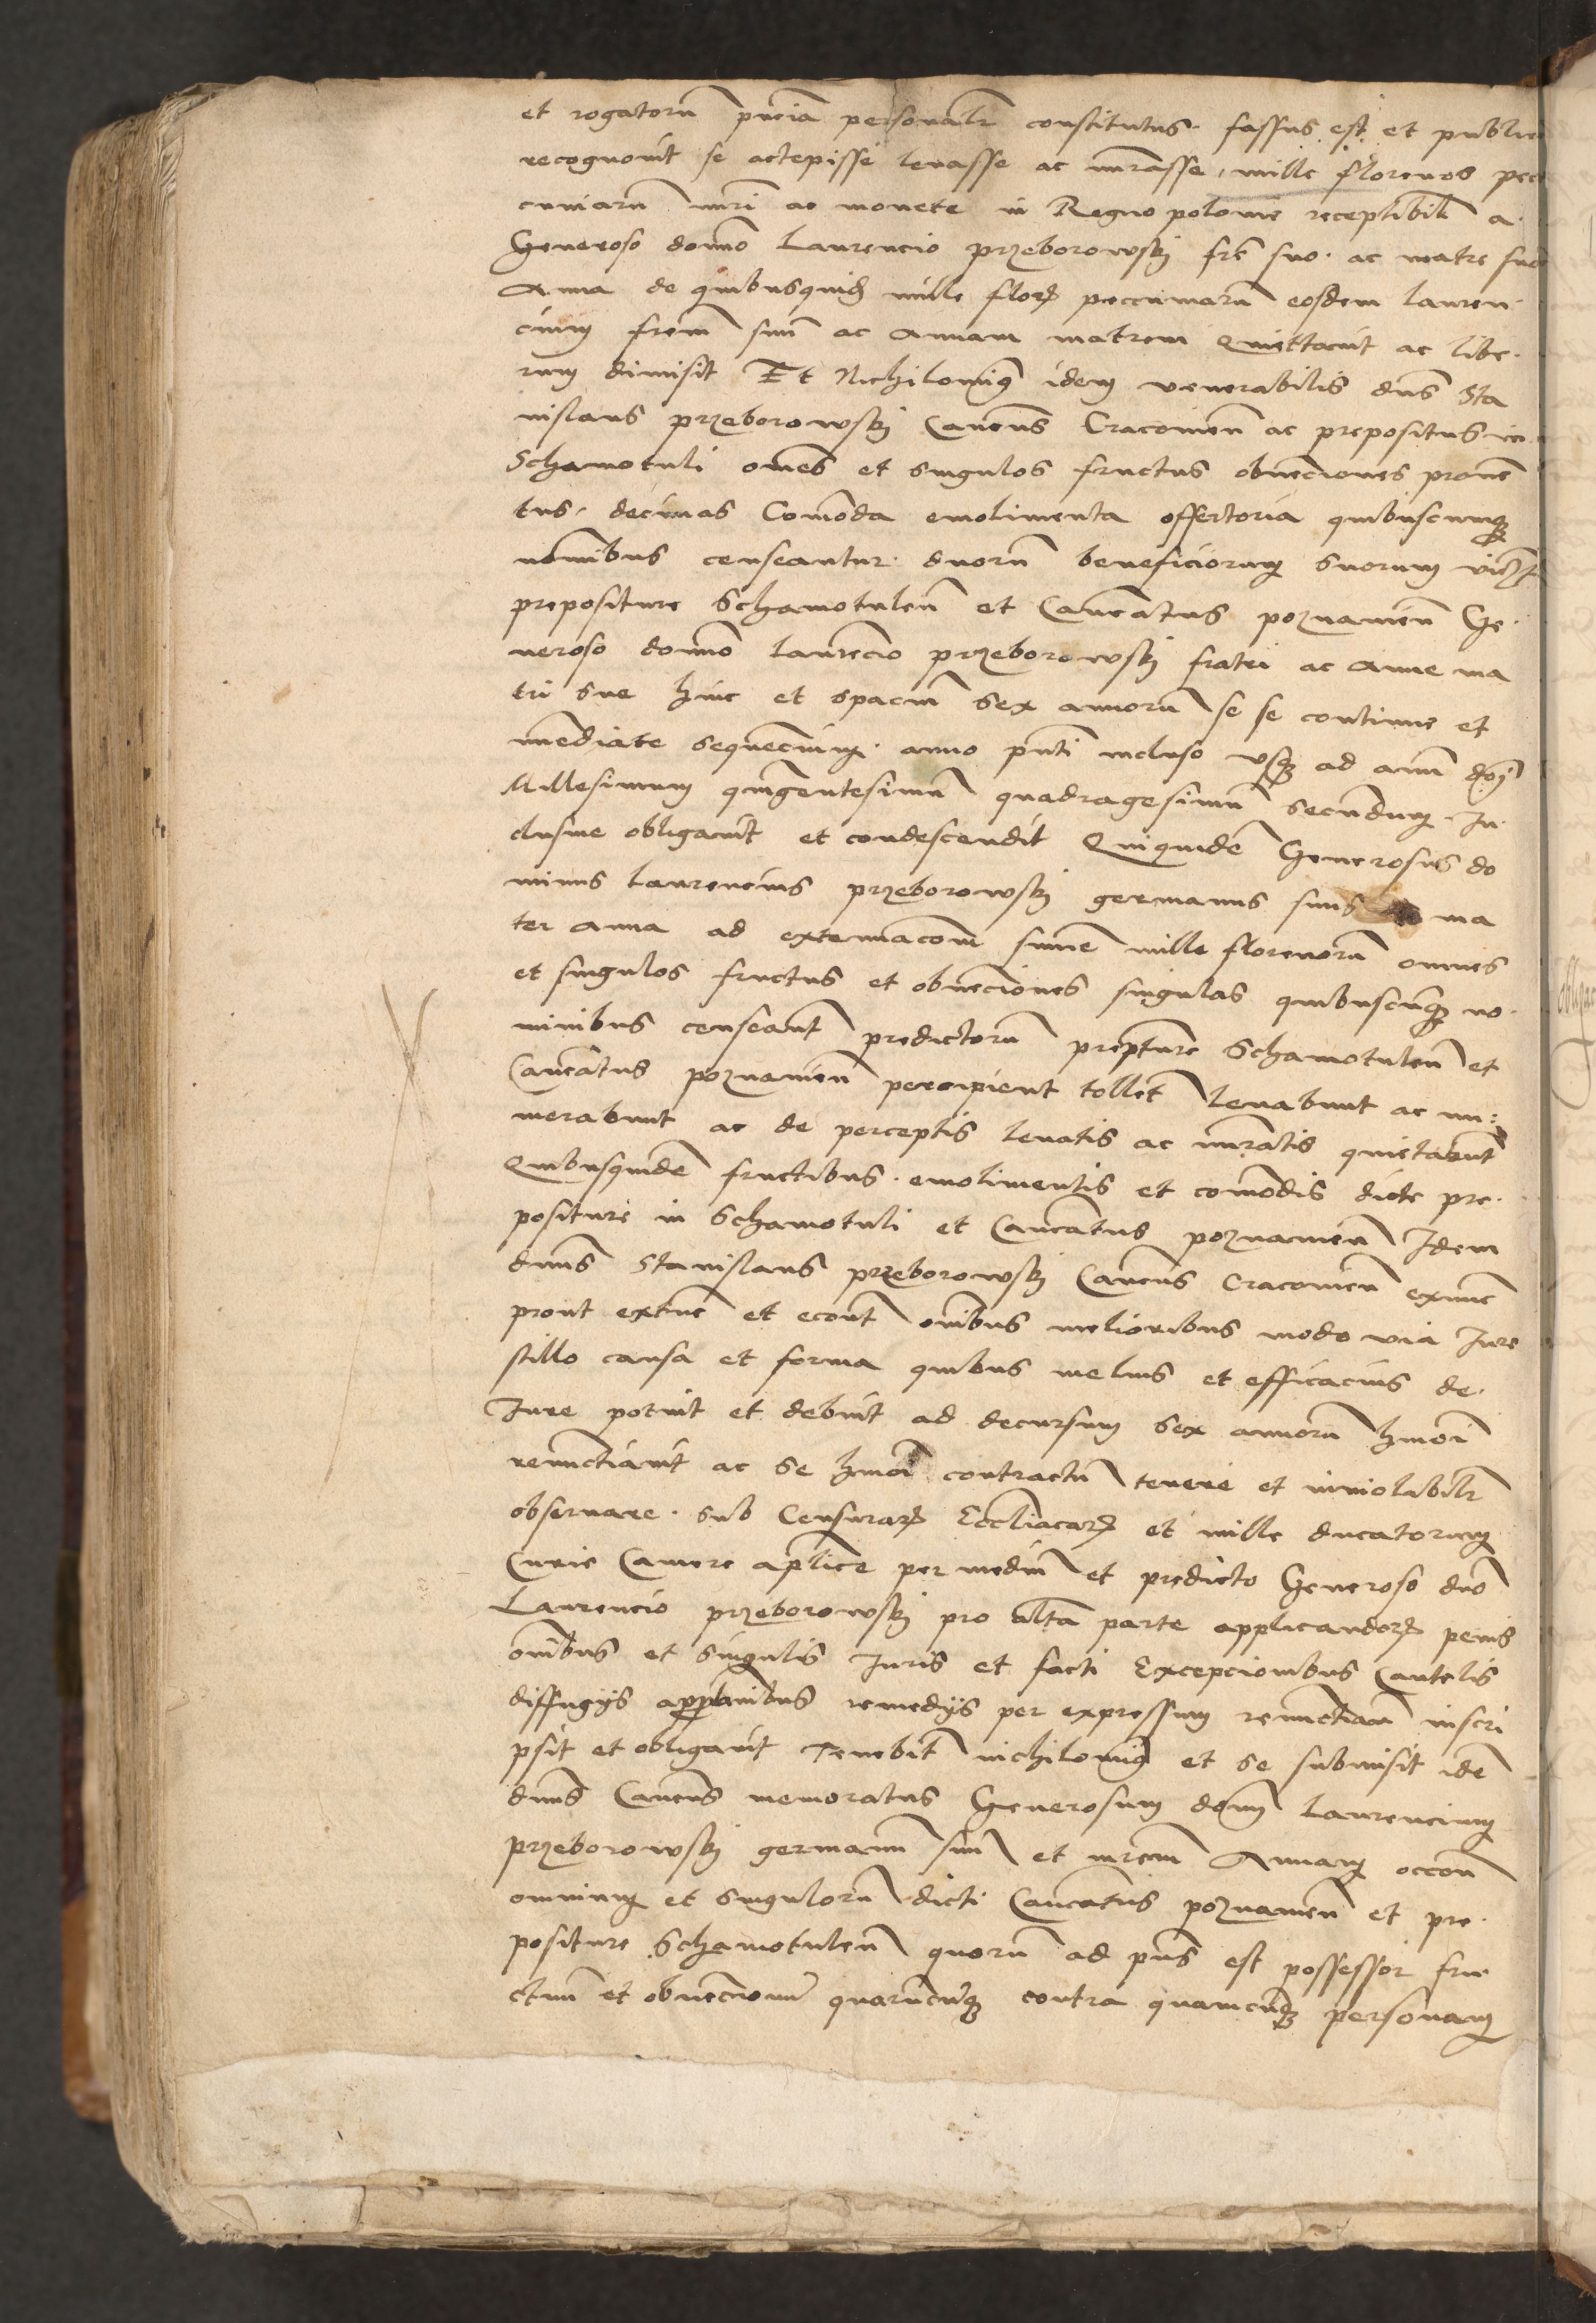 et rogatorũ pñcia personalr̃ constitutus. fassus est. et public
recognovit se accepisse levasse ac nũrasse, mille florenos pec
cuniarũ nũri ac monete in Regno polonie receptibil̃ a.
Generoso domĩo Laurencio przeborowskj fr̃e suo. ac matre sua
Anna de quibusquid̃ mille flor̃ peccuniarũ eosdem Lauren.
cium frem̃ suũ ac Annam matrem Quittavit ac libe.
rum dimisit Et Nichilomiñq idem venerabilis dñs Sta
nislaus przeborowskj Canoñs Cracovieñ ac prepositus in
Schamotuli omẽs et singulos fructus obvenciones proveñ
tus. decimas Com̃oda emolimenta offertoria quibuscumq3
nom̃ibus censeantur. duorũ beneficiorum suorum vicz3
prepositure Schamotuleñ et Canocatus poznanieñ Ge.
neroso domĩo Laurẽcio przeborowskj fratri ac Anne ma
tri sue hinc et spaciũ sex annorũ se se continue et
ĩmediate sequẽcium. anno pñti incluso usq3 ad annũ dñj
Millesimum quĩgentesimũ quadragesimũ secundum. In
clusive obligavit et condescendit Quiquidẽ Generosus do
minus Laurencius przeborowskj germanus suus ma
ter Anna ad extenuacom̃ sum̃e mille florenorũ omnes
et singulos fructus et obvenciones singulas quibuscũq3 no.
minibus censeant̃ predictorũ prepture Schamotuleñ et
Canocatus poznanieñ percipient tollet̃ levabunt ac nu:
merabunt ac de perceptis levatis ac nũratis quietabunt
Quibusquidẽ fructibus. emolimentis et com̃odis dicte pre.
positure in Schamotuli et Canocatus poznanieñ Idem
dnũs Stanislaus przeborowskj Canoñs cracovieñ exnũc
prout extũc et econt̃ om̃ibus melioribus modo via Iure
stillo causa et forma quibus melius et efficacius de.
Iure potuit et debuit ad decursum sex annorũ hmõi
renunctiavit ac se hmõi contractũ tenere et inviolabilr̃
observare. sub Censurar̃ Ecclĩacar̃ et mille ducatorum
Curie Camere aplice per mediũ et predicto Generoso dño
Laurencio przeborowskj pro alt̃a parte applicandor̃ penis
om̃ibus et singulis Iuris et facti Excepcionibus Cautelis
diffugijs remedijs per expressum renũctiacom̃ inscri
psit et obligavit Tenebit̃ nichilomiñq et se submisit idẽ
dnũs Canoñs memoratus Generosum dom̃ Laurencium
przeborowskj germanũ suũ et mrem̃ Annam occoñe
omnium et singulorũ dicti Canocatus poznanieñ et pre.
positure Schamotuleñ quorũ ad pñs est possessor fru
ctuũ et obvencionũ quarũcũq3 contra quamcũq3 personam